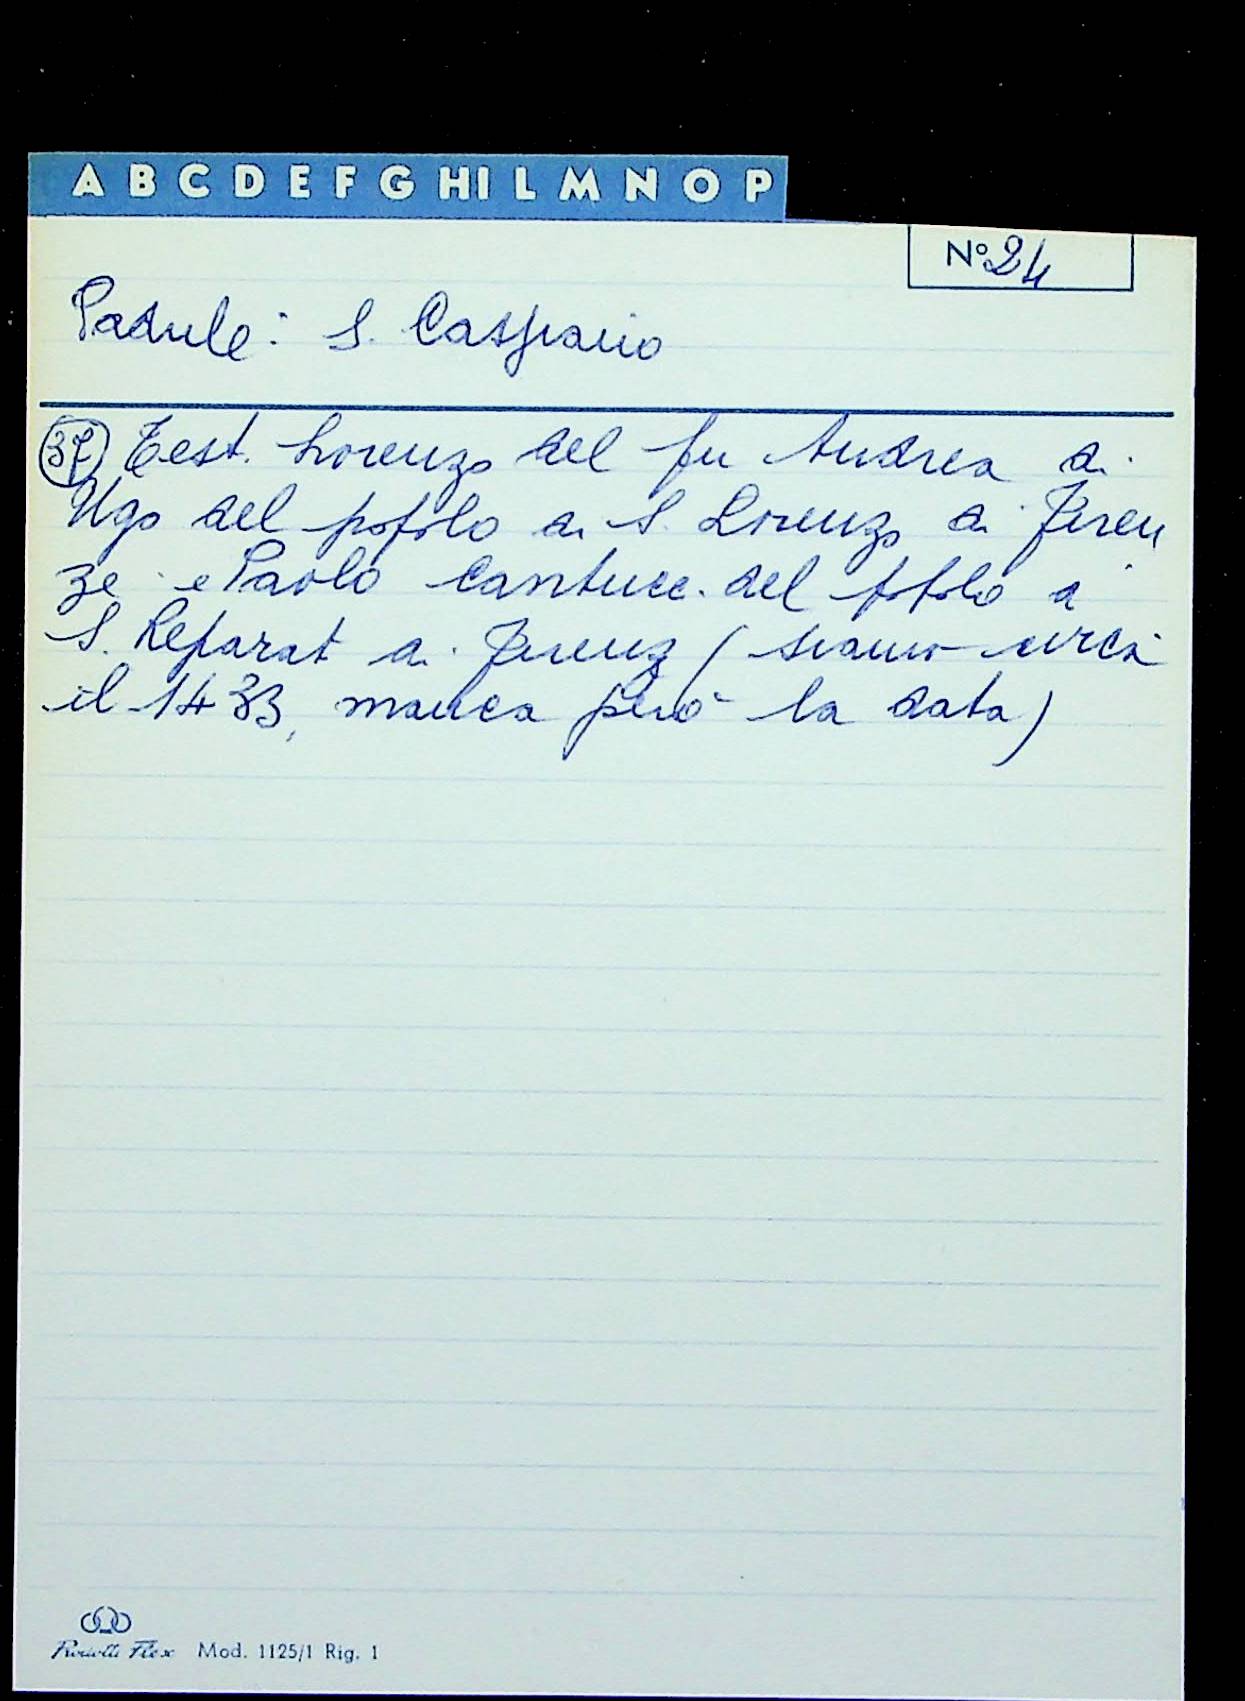 A B C D E F G HI L M N O P
N° 24
Padule: S. Caspiano
Test. Lorenzo del fu Andrea di
Ugo del popolo di S. Lorenzo di Firen
ze e Paolo Cantucc. del popolo di
S. Reparat di Firenz (siamo circa
il 1433, manca però la data)
Mod. 1125/1 Rig. 1